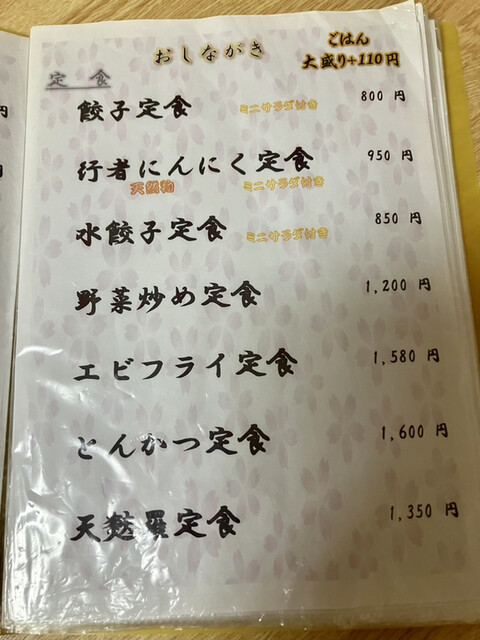 おしながき
ごはん
大盛り+110円
定 食
餃子定食 ミニサラダ付き 800 円
行者にんにく定食 950 円
天然物 ミニサラダ付き
水餃子定食 ミニサラダ付き 850 円
野菜炒め定食 1,200 円
エビフライ定食 1,580 円
とんかつ定食 1,600 円
天麩羅定食 1,350 円